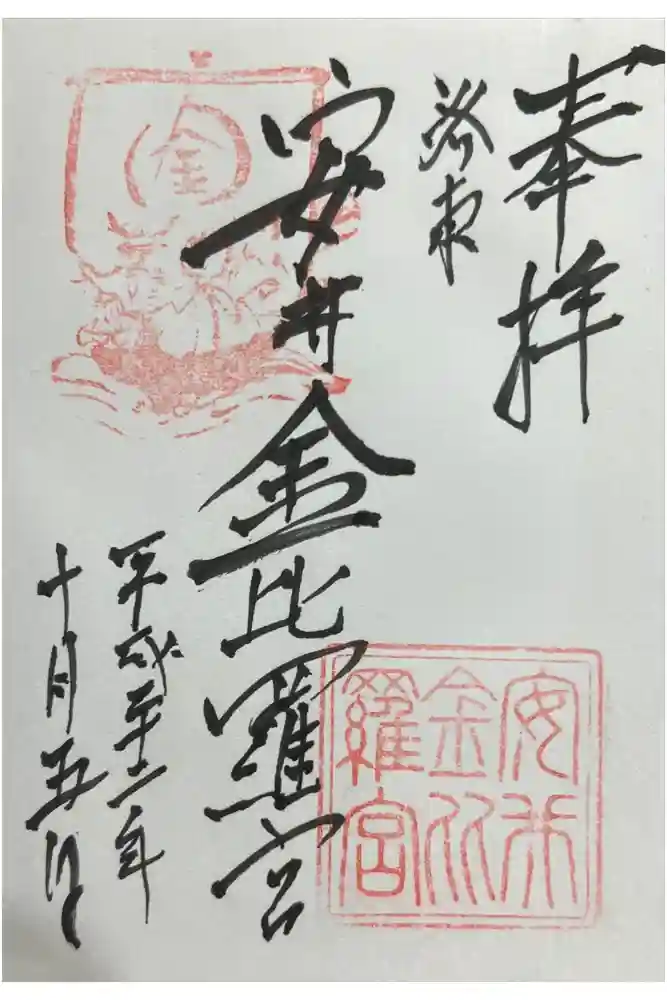 奉拝
洛東
安井金比羅宮
平成二十二年
十月五日
金
安井
金比
羅宮